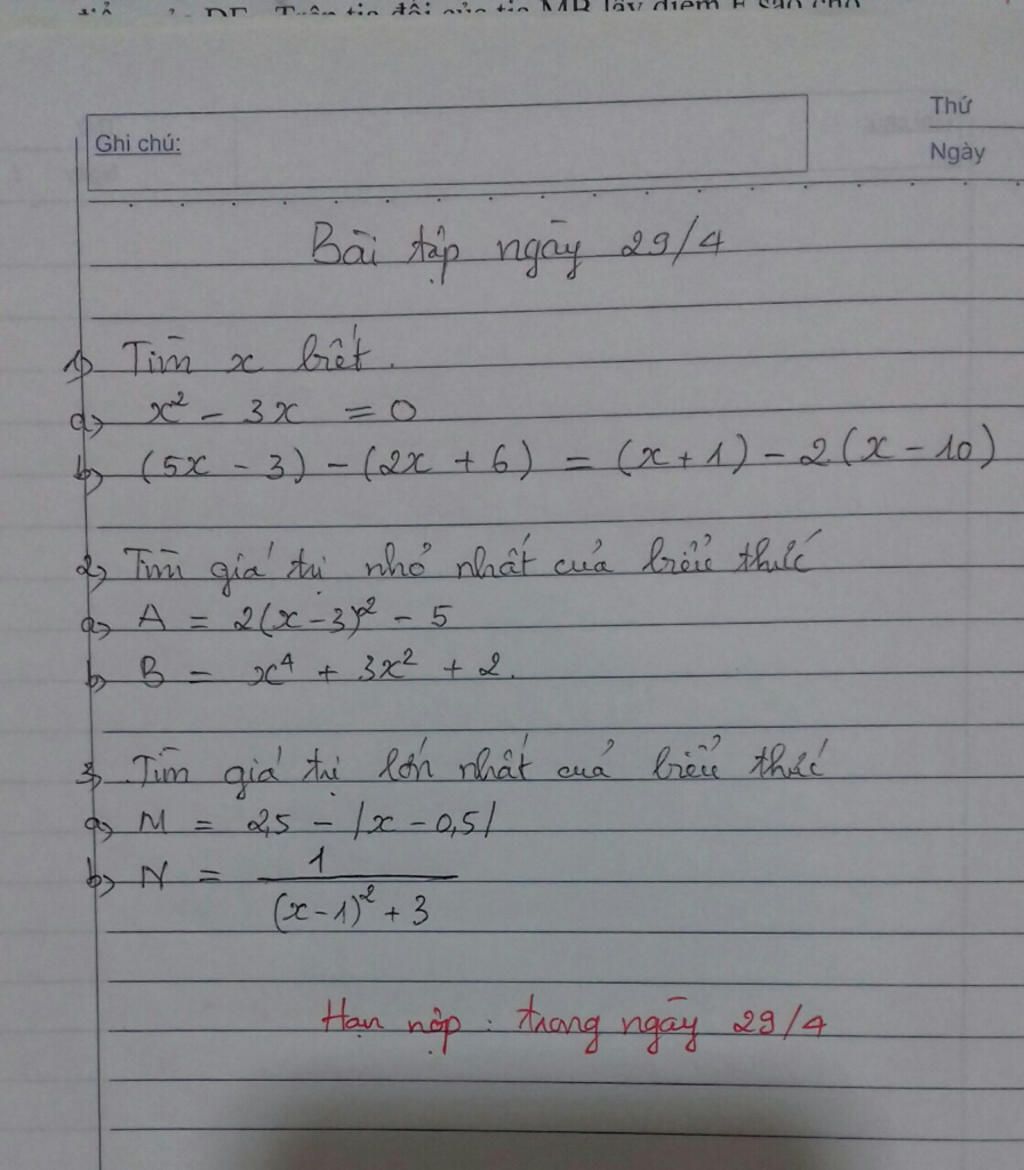 DE. Trên tia đối của tia MB lấy điểm F sao cho
Thứ
Ghi chú:
Ngày
Bài tập ngày 29/4
1) Tìm x biết.
a) x² - 3x = 0
b) (5x - 3) - (2x + 6) = (x + 1) - 2(x - 10)
2) Tìm giá trị nhỏ nhất của biểu thức
a) A = 2(x-3)² - 5
b) B = x⁴ + 3x² + 2.
3) Tìm giá trị lớn nhất của biểu thức
a) M = 2,5 - |x - 0,5|
b) N = 1
(x-1)² + 3
Hạn nộp : trong ngày 29/4